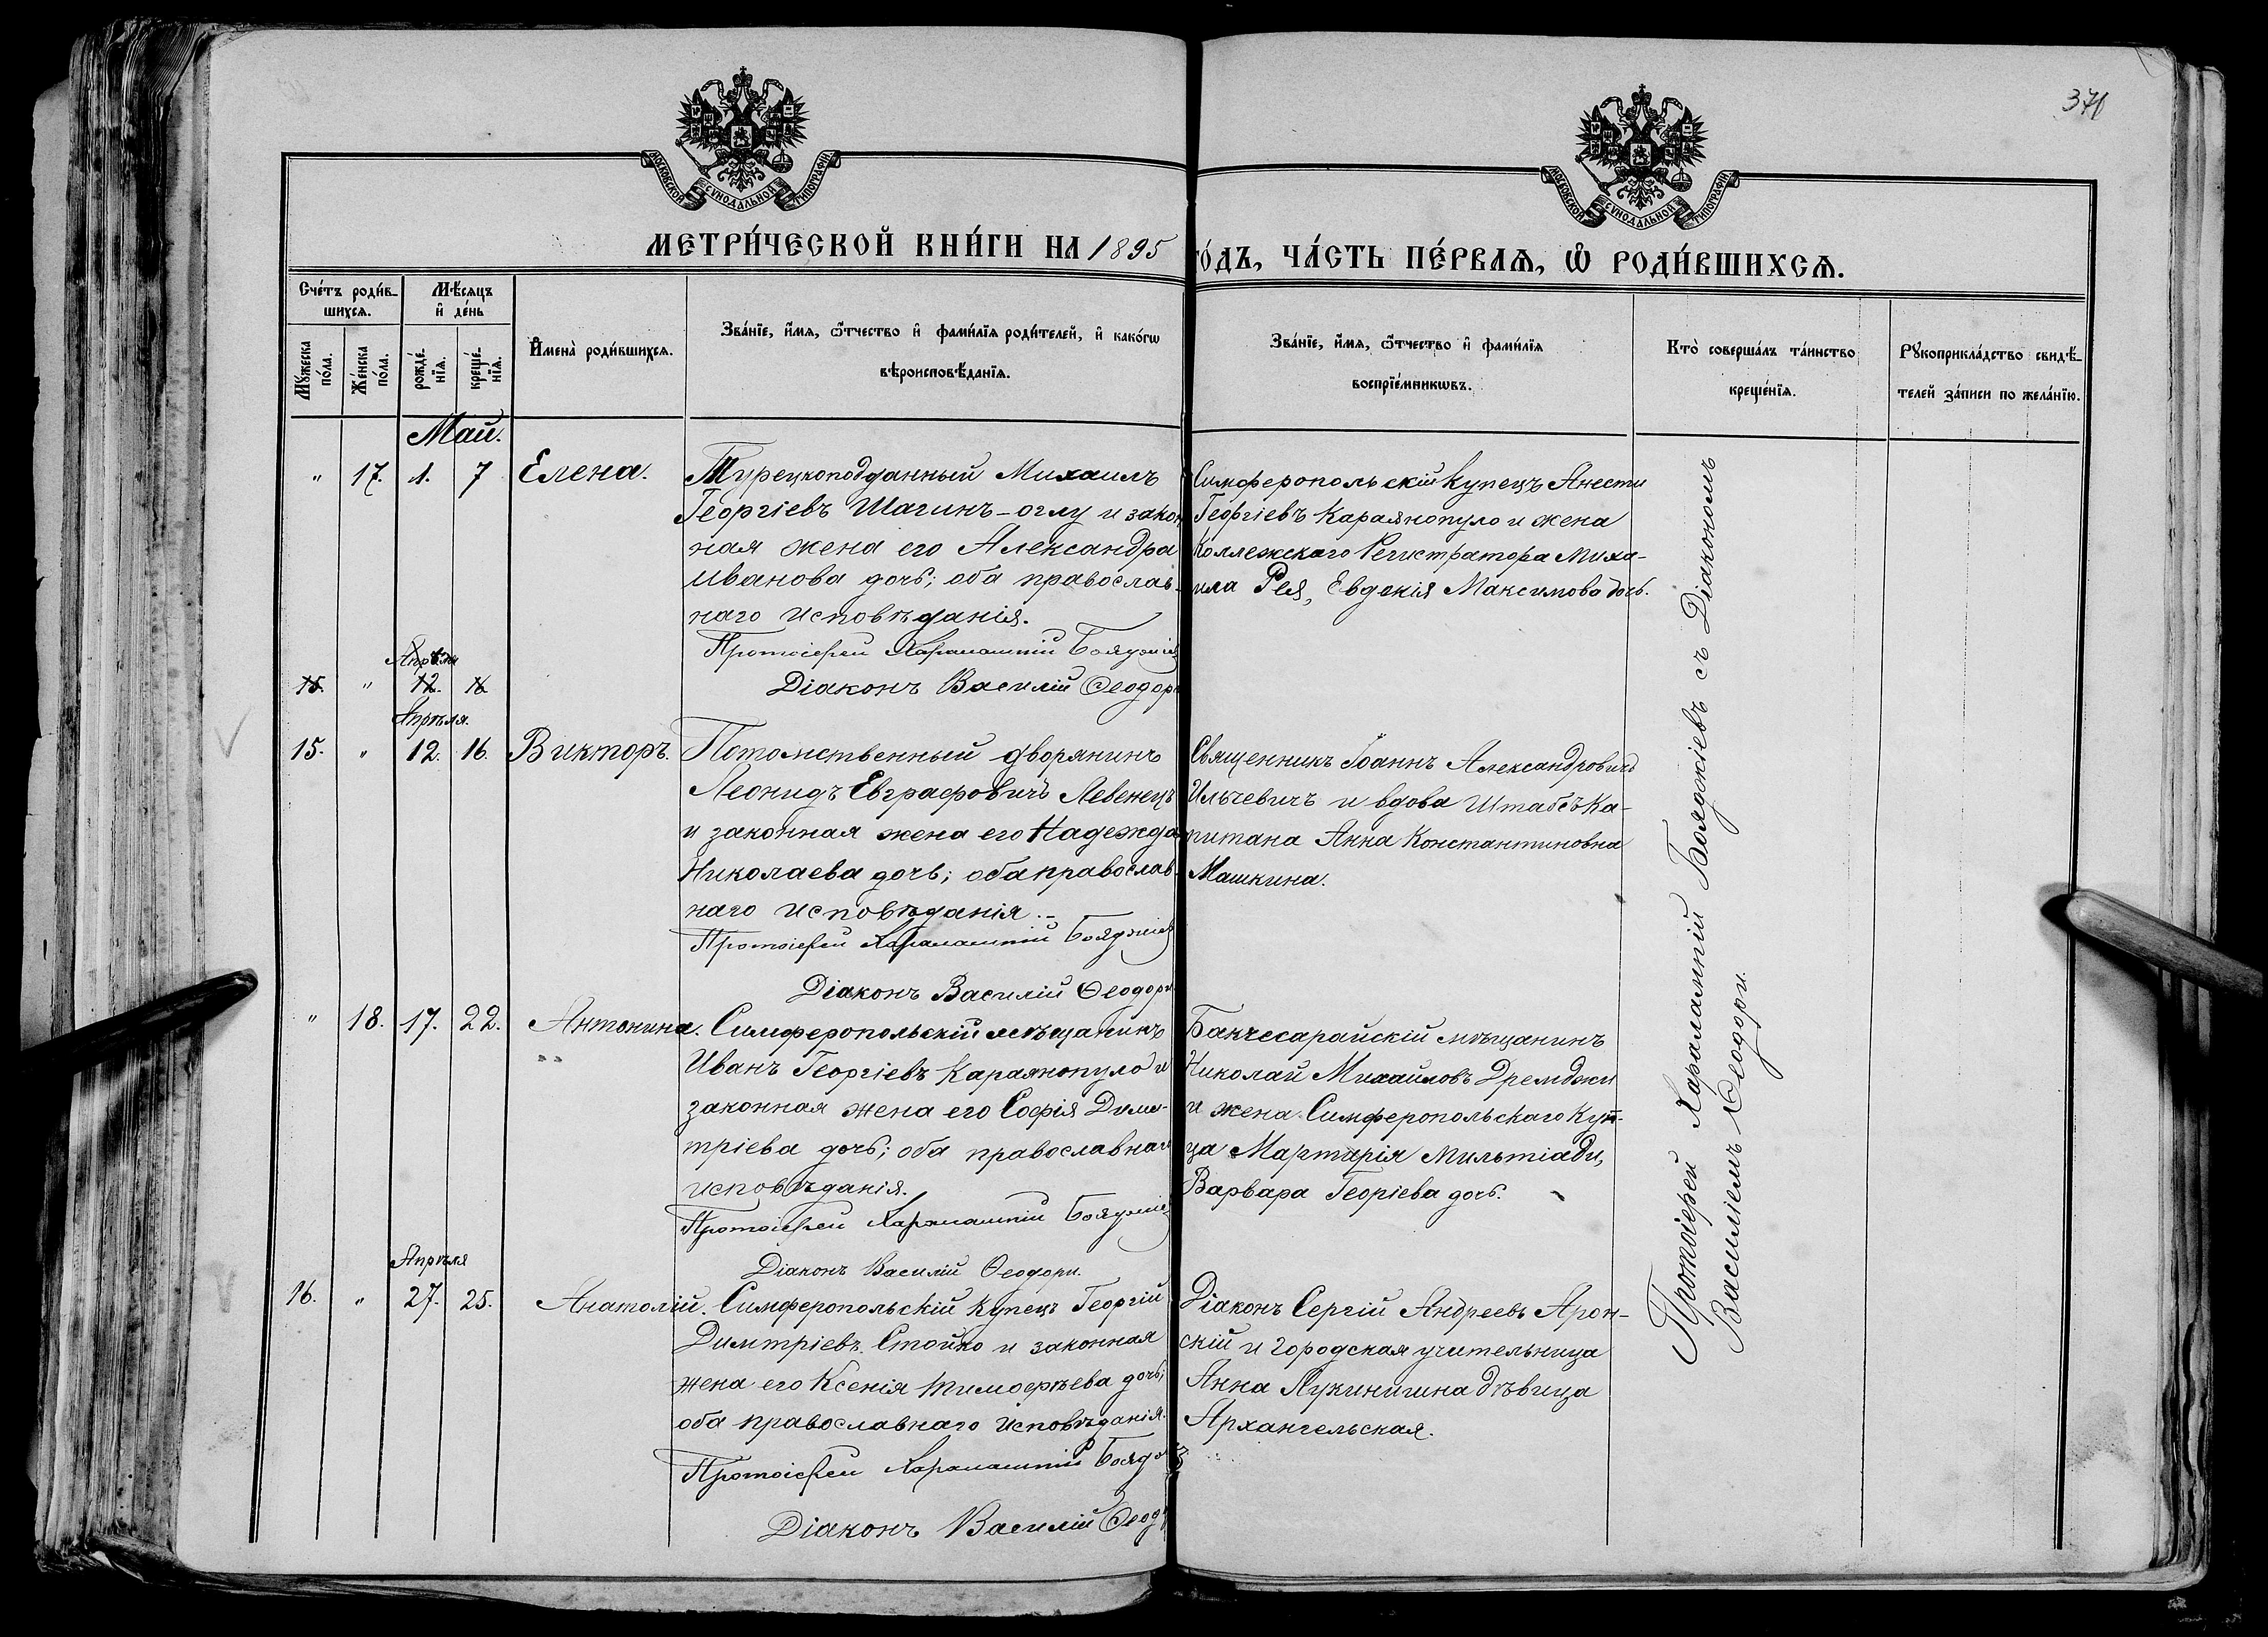 371
МОСКОВСКОЙ СУНОДАЛЬНОЙ ТИПОГРАФІИ.
МОСКОВСКОЙ СУНОДАЛЬНОЙ ТИПОГРАФІИ.
МЕТРИ́ЧЕСКОЙ КНИ́ГИ НА 1895
ГО́ДЪ, ЧА́СТЬ ПЕ́РВАѦ, Ѿ РОДИ́ВШИХСѦ.
Сче́тъ роди́в-
шихсѧ.
Мѣ́сѧцъ
и҆ де́нь
Мꙋ́жеска
по́ла.
Же́нска
по́ла.
рожде́-
нїѧ.
креще́-
нїѧ.
И҆мена̀ роди́вшихсѧ.
Зва́нїе, и҆́мѧ, ѻ҆́тчество и҆ фами́лїѧ роди́телей, и҆ како́гѡ
вѣроисповѣ́данїѧ.
Зва́нїе, и҆́мѧ, ѻ҆́тчество и҆ фами́лїѧ
воспрїе́мникѡвъ.
Кто̀ соверша́лъ та́инство
креще́нїѧ.
Рꙋкоприкла́дство свидѣ́-
телей за́писи по жела́нїю.
Май.
" 17. 1. 7 Елена.
Турецкоподданный Михаилъ
Георгіевъ Шагинъ-оглу и закон
ная жена его Александра
Иванова дочь; оба православ-
наго исповѣданія.
Протоіерей Харалампій Бояджіев
Діаконъ Василій Ѳеодори
Симферопольскій купецъ Анести
Георгіевъ Караянопуло и жена
Коллежскаго Регистратора Миха-
ила Рея, Евдокія Максимова дочь.
Апрѣля
15. " 12. 16
Апрѣля.
15. " 12. 16. Викторъ.
Потомственный дворянинъ
Леонидъ Евграфовичъ Левенецъ
и законная жена его Надежда
Николаева дочь; оба православ-
наго исповѣданія.-
Протоіерей Харалампій Бояджіев
Діаконъ Василій Ѳеодори
Священникъ Іоаннъ Александровичъ
Ильчевичъ и вдова Штабсъ Ка-
питана Анна Константиновна
Машкина.
" 18. 17. 22. Антонина.
Симферопольскій мѣщанинъ
Иванъ Георгіевъ Караянопуло и
законная жена его Софія Дими-
тріева дочь; оба православнаго
исповѣданія.
Протоіерей Харалампій Бояджіев
Діаконъ Василій Ѳеодори.
Бакчесарайскій мѣщанинъ
Николай Михаиловъ Дремджи
и жена Симферопольскаго Куп-
ца Мартирія Мильтіади,
Варвара Георіева дочь.
Апрѣля
16. " 27. 25. Анатолій.
Симферопольскій Купецъ Георгій
Димтріевъ Стойко и законная
жена его Ксенія Тимофѣева дочь;
оба православнаго исповѣданія.
Протоіерей Харалампій Бояд
Діаконъ Василій Ѳеод
Діаконъ Сергій Андреевъ Арон-
скій и городская учительница
Анна дѣвица
Архангельская.
Протоіерей Харалампій Бояджіевъ съ Діакономъ
Василіемъ Ѳеодори.